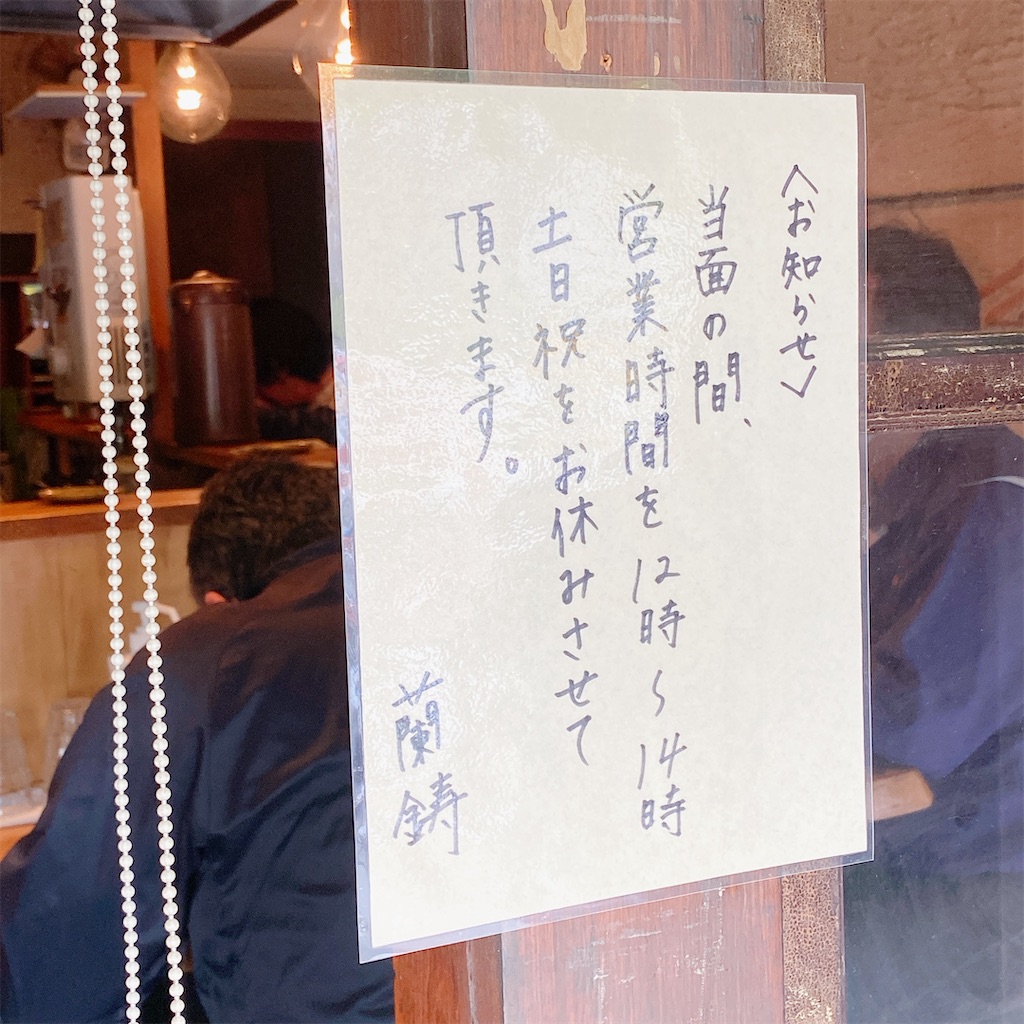 〈お知らせ〉
当面の間、
営業時間を12時〜14時
土日祝をお休みさせて
頂きます。
蘭鋳